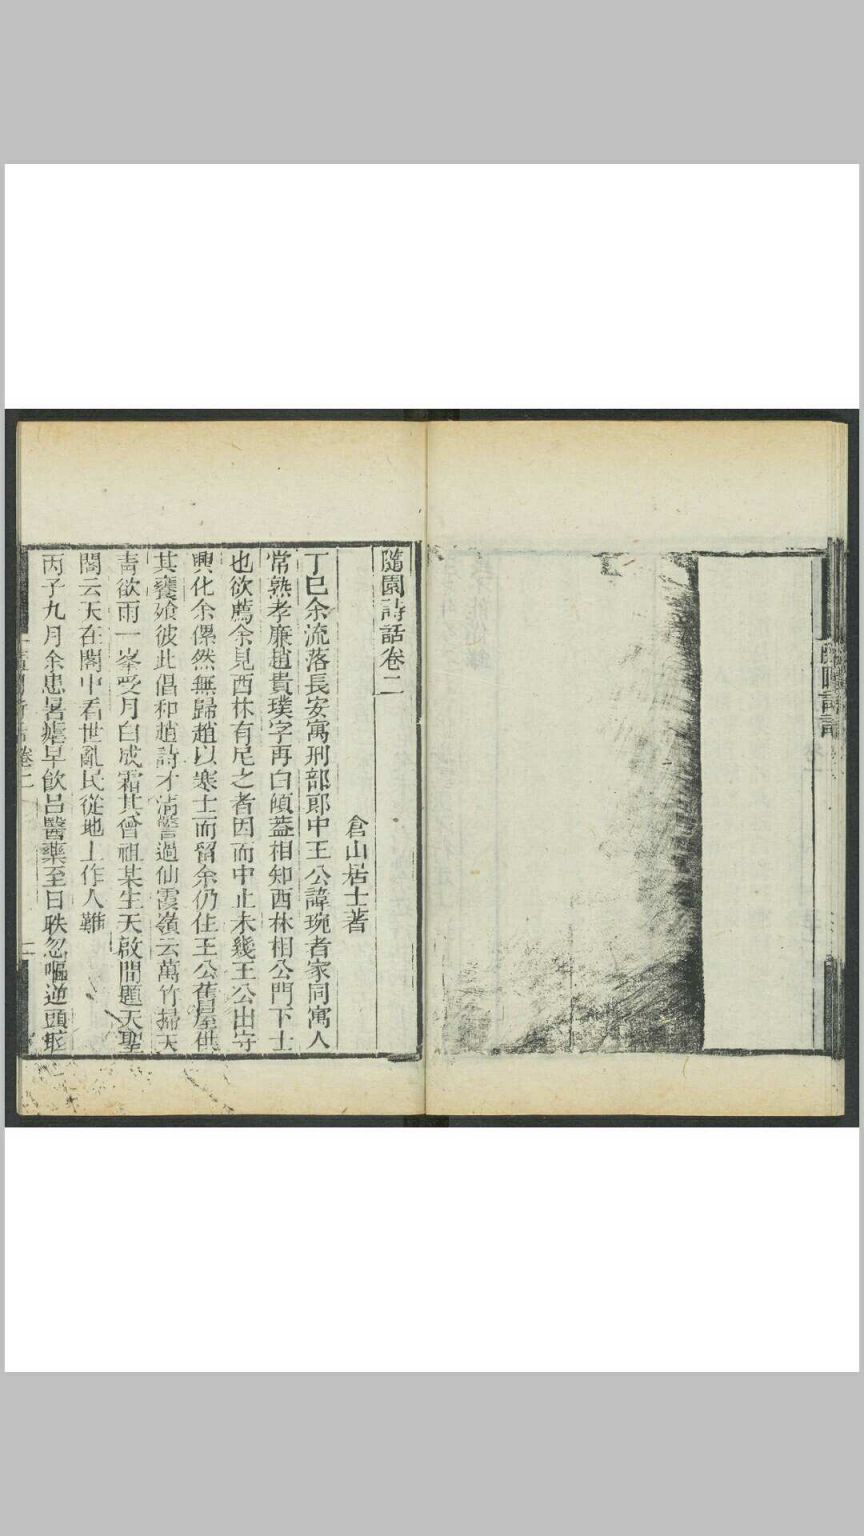 隨園詩話
隨園詩話卷二
倉山居士著
丁巳余流落長安寓刑部郎中王公諱琬者家同寓人
常熟孝廉趙貴璞字再白傾蓋相知西林相公門下士
也欲薦余見西林有尼之者因而中止未幾王公出守
興化余傫然無歸趙以寒士而留余仍住王公舊屋供
其饔飧彼此倡和趙詩才清警過仙霞嶺云萬竹掃天
青欲雨一峯受月白成霜其曾祖某生天啟間題天聖
閣云天在閣中看世亂民從地上作人難
丙子九月余患暑瘧早飲呂醫藥至日昳忽嘔逆頭眩
隨園詩話卷二
一